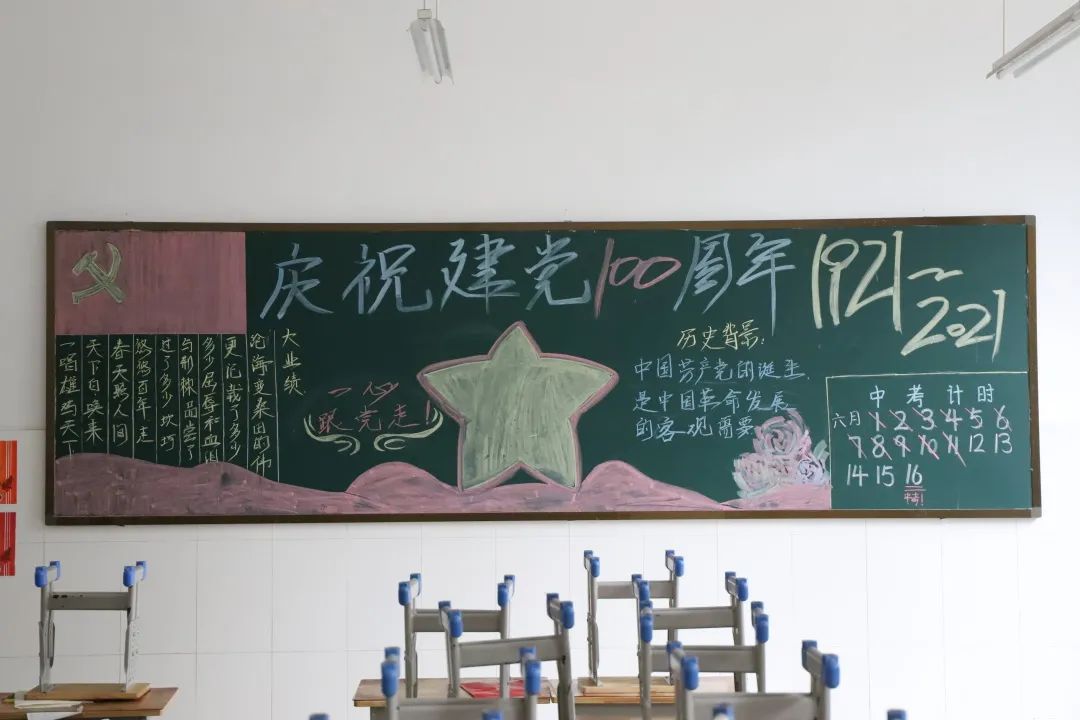 庆祝建党100周年 1921~2021
一唱雄鸡天
天下白唤来
春天人间
悠悠百年走
过了多少坎坷
与荆棘品尝了
多少屈辱和血泪
更记载了多少
沧海变桑田的伟
大业绩
一心
跟党走!
历史背景:
中国共产党的诞生,
是中国革命发展
的客观需要
中考计时
六月 1 2 3 4 5 6
7 8 9 10 11 12 13
14 15 16